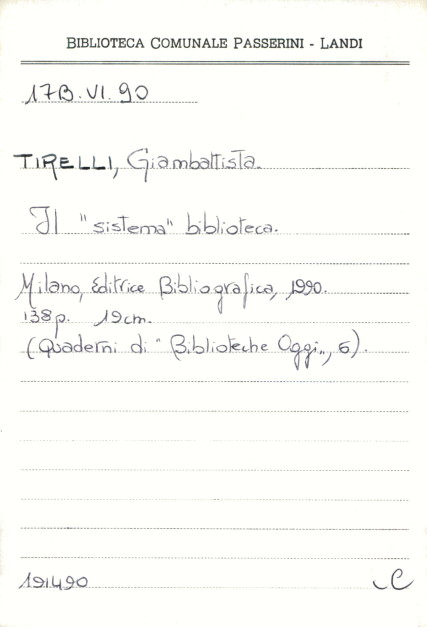 BIBLIOTECA COMUNALE PASSERINI - LANDI
17B.VI.90
TIRELLI, Giambattista.
Il "sistema" biblioteca.
Milano, Editrice Bibliografica, 1990.
138p. 19cm.
(Quaderni di "Biblioteche Oggi", 6).
191490